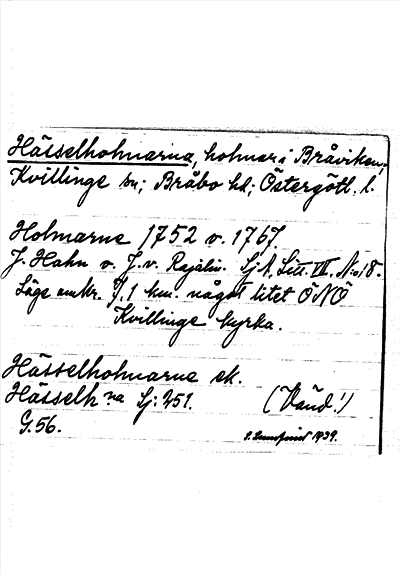 Hässelholmarna, holmar i Bråviken,
Kvillinge sn; Bråbo hd; Östergötl. l.
Holmarne 1752 o. 1767.
J. Hahn o. J. v. Rajalin. Sj A, Litt. VII. No 18.
Läge omkr. 7,1 km. något litet ÖNÖ
Kvillinge kyrka.
Hässelholmarne ek.
Hässelh na Sj: 251. (Vänd!)
G. 56.
1939.